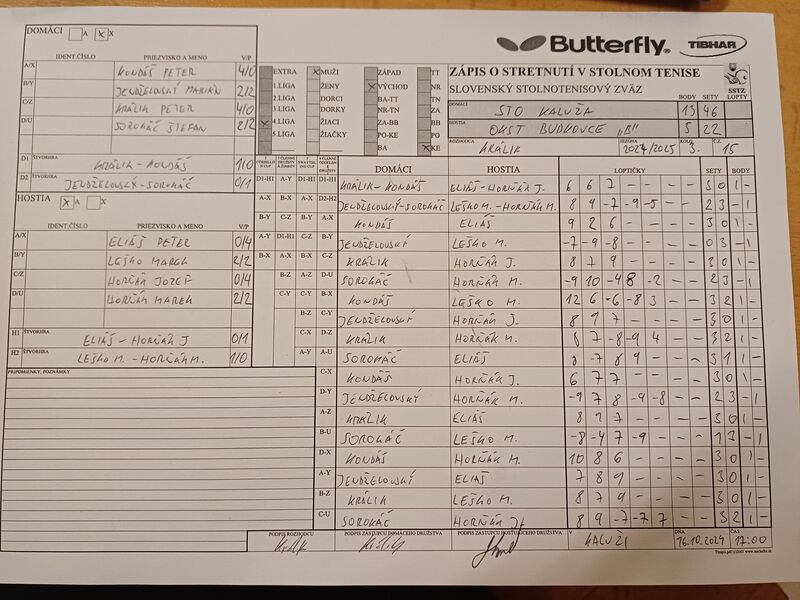 DOMÁCI A X X
IDENT.ČÍSLO PRIEZVISKO A MENO V/P
A/X KONDÁŠ PETER 4/0
B/Y JENDŽELOVSKÝ MARIÁN 2/2
C/Z KRÁLIK PETER 4/0
D/U SOROKÁČ ŠTEFAN 2/2
D1 ŠTVORHRA KRÁLIK-KONDÁŠ 1/0
D2 ŠTVORHRA JENDŽELOVSKÝ-SOROKÁČ 0/1
HOSTIA X A X
IDENT.ČÍSLO PRIEZVISKO A MENO V/P
A/X ELIÁŠ PETER 0/4
B/Y LEŠKO MAREK 2/2
C/Z HORŇÁK JOZEF 0/4
D/U HORŇÁK MAREK 2/2
H1 ŠTVORHRA ELIÁŠ-HORŇÁK J 0/1
H2 ŠTVORHRA LEŠKO M.-HORŇÁK M. 1/0
PRIPOMIENKY, POZNÁMKY
Butterfly TIBHAR
EXTRA X MUŽI ZÁPAD TT
1.LIGA ŽENY X VÝCHOD NR
2.LIGA DORCI BA-TT TN
3.LIGA DORKY NR-TN ZA
X 4.LIGA ŽIACI ZA-BB BB
5.LIGA ŽIAČKY PO-KE PO
BA X KE
ZÁPIS O STRETNUTÍ V STOLNOM TENISE
SLOVENSKÝ STOLNOTENISOVÝ ZVÄZ
SSTZ
BODY SETY LOPTY
DOMÁCI STO KALUŽA 13 46
HOSTIA OKST BUDKOVCE „B" 5 22
ROZHODCA KRÁLIK SEZÓNA 2024/2025 KOLO 3. Č. 15
DOMÁCI HOSTIA LOPTIČKY SETY BODY
D1-H1 A-Y D1-H1 D1-H1 KRÁLIK-KONDÁŠ ELIÁŠ-HORŇÁK J. 6 6 7 - - - - 3 0 1 -
A-X B-X A-X D2-H2 JENDŽELOVSKÝ-SOROKÁČ LEŠKO M.-HORŇÁK M. 8 9 -7 -9 -5 - - 2 3 - 1
B-Y C-Z B-Y A-X KONDÁŠ ELIÁŠ 9 2 6 - - - - 3 0 1 -
A-Y D1-H1 C-Z B-Y JENDŽELOVSKÝ LEŠKO M. -7 -9 -8 - - - - 0 3 - 1
B-X A-X B-X C-Z KRÁLIK HORŇÁK J. 8 7 9 - - - - 3 0 1 -
B-Z A-Z D-U SOROKÁČ HORŇÁK M. -9 10 -4 8 -2 - - 2 3 - 1
C-Y C-Y B-X KONDÁŠ LEŠKO M. 12 6 -6 -8 3 - - 3 2 1 -
B-Z C-Y JENDŽELOVSKÝ HORŇÁK J. 8 9 7 - - - - 3 0 1 -
C-X D-Z KRÁLIK HORŇÁK M. 8 7 -8 -9 4 - - 3 2 1 -
A-Y A-U SOROKÁČ ELIÁŠ 8 -7 8 9 - - - 3 1 1 -
C-X KONDÁŠ HORŇÁK J. 6 7 7 - - - - 3 0 1 -
D-Y JENDŽELOVSKÝ HORŇÁK M. -9 7 8 -9 -8 - - 2 3 - 1
A-Z KRÁLIK ELIÁŠ 8 9 7 - - - - 3 0 1 -
B-U SOROKÁČ LEŠKO M. -8 -4 7 -9 - - - 1 3 - 1
D-X KONDÁŠ HORŇÁK M. 10 8 6 - - - - 3 0 1 -
A-Y JENDŽELOVSKÝ ELIÁŠ 7 8 9 - - - - 3 0 1 -
B-Z KRÁLIK LEŠKO M. 8 7 9 - - - - 3 0 1 -
C-U SOROKÁČ HORŇÁK J. 8 9 -7 -7 7 - - 3 2 1 -
PODPIS ROZHODCU PODPIS ZÁSTUPCU DOMÁCEHO DRUŽSTVA PODPIS ZÁSTUPCU HOSŤUJÚCEHO DRUŽSTVA V KALUŽI DŇA 16.10.2024 ČAS 17:00